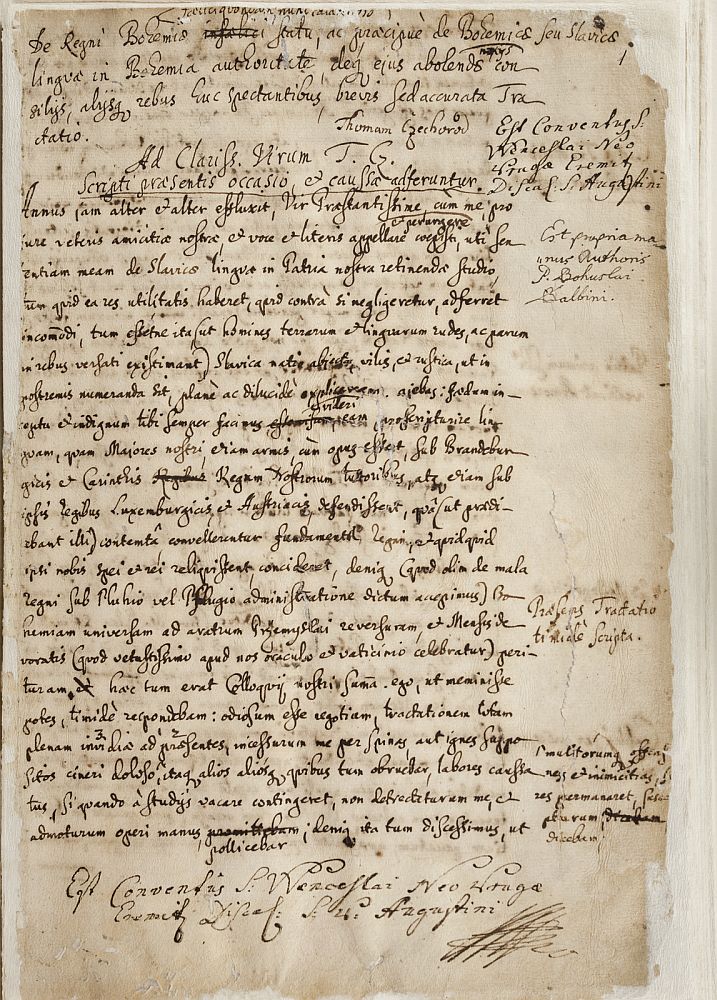 De Regni Bohemiæ infælici statu, ac præcipuè de Bohemicæ seu Slavicæ
1
linguæ in Bohemia authoritate, deq ejus abolendæ con
silijs, alijsq rebus huc spectantibus, brevis sed accurata Tra
ctatio.
Thomam Czechorod
Ad Clariss. Virum T. C.
Scripti præsentis occasio, et caussæ adferuntur.
Est Conventus S:
Wenceslai Neo
Pragæ Eremit:
Discal: S: Augustini
Annus jam alter et alter effluxit, Vir Præstantissime, cum me, pro
et perurgere
jure veteris amicitiæ nostræ et voce et literis appellare coepisti, uti sen
tentiam meam de Slavicæ linguæ in Patria nostra retinendæ studio,
Est propria ma
nus Authoris
P. Bohuslai
Balbini.
tum quid ea res utilitatis haberet, quid contrà si negligeretur, adferret
incom̄odi, tum essétne ita (ut homines terrarum et linguarum rudes, ac parum
in rebus versati existimant) Slavica natio abjecta, vilis, et rustica, ut in
postremis numeranda sit, planè ac dilucidè explicarem. ajebas: fædum in
ceptu et indignum tibi semper facinus videri proscripturire lin
guam, quam Majores nostri etiam armis, cùm opus esset, sub Brandebur
gicis et Carinthis Regibus Regum Nostrorum tutoribus, atq etiam sub
ipsis Regibus Luxemburgicis et Austriacis defendissent, quâ (ut prædi
cbant illi) contemtâ convellerentur fundamenta Regni, et quidquid
ipsi nobis spei et rei reliquissent, concideret, deniq (quod olim de mala
regni sub Pluhio vel Pflugio administratione dictum accepimus) Bo
hemiam universam ad aratrum Przemyslai reversuram, et Mensis de
voratis (quod vetustissimo apud nos oraculo et vaticinio celebratur) peri
Præsens Tractatio
timidè scripta.
turam. et hæc tum erat Colloquij nostri sum̄a. ego, ut meminisse
potes, timidè respondebam: odiosum esse negotium, tractationem totam
plenam invidiæ ad præsentes, incessurum me per spinas aut ignes suppo
sitos cineri doloso, itaq alios aliosq quibus tum obruebar, labores caussa
tus, si quando à studijs vacare contingeret, non detrectaturum me, et
admoturum operi manus promittebam; deniq ita tum discessimus, ut
pollicebar
multorumq offensi
nes et inimicitias, si
res permanaret, susce
pturum, dicebam
dicebam;
Est Conventûs S: Wenceslai Neo Pragæ
Eremit: Discal: S: P: Augustini